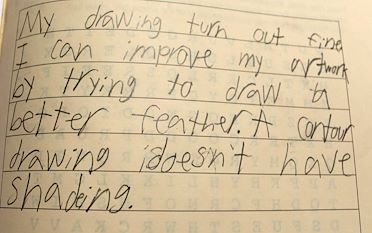 My drawing turn out fine
I can improve my artwork
by trying to draw a
better feather. A contour
drawing doesn't have
shadeing.